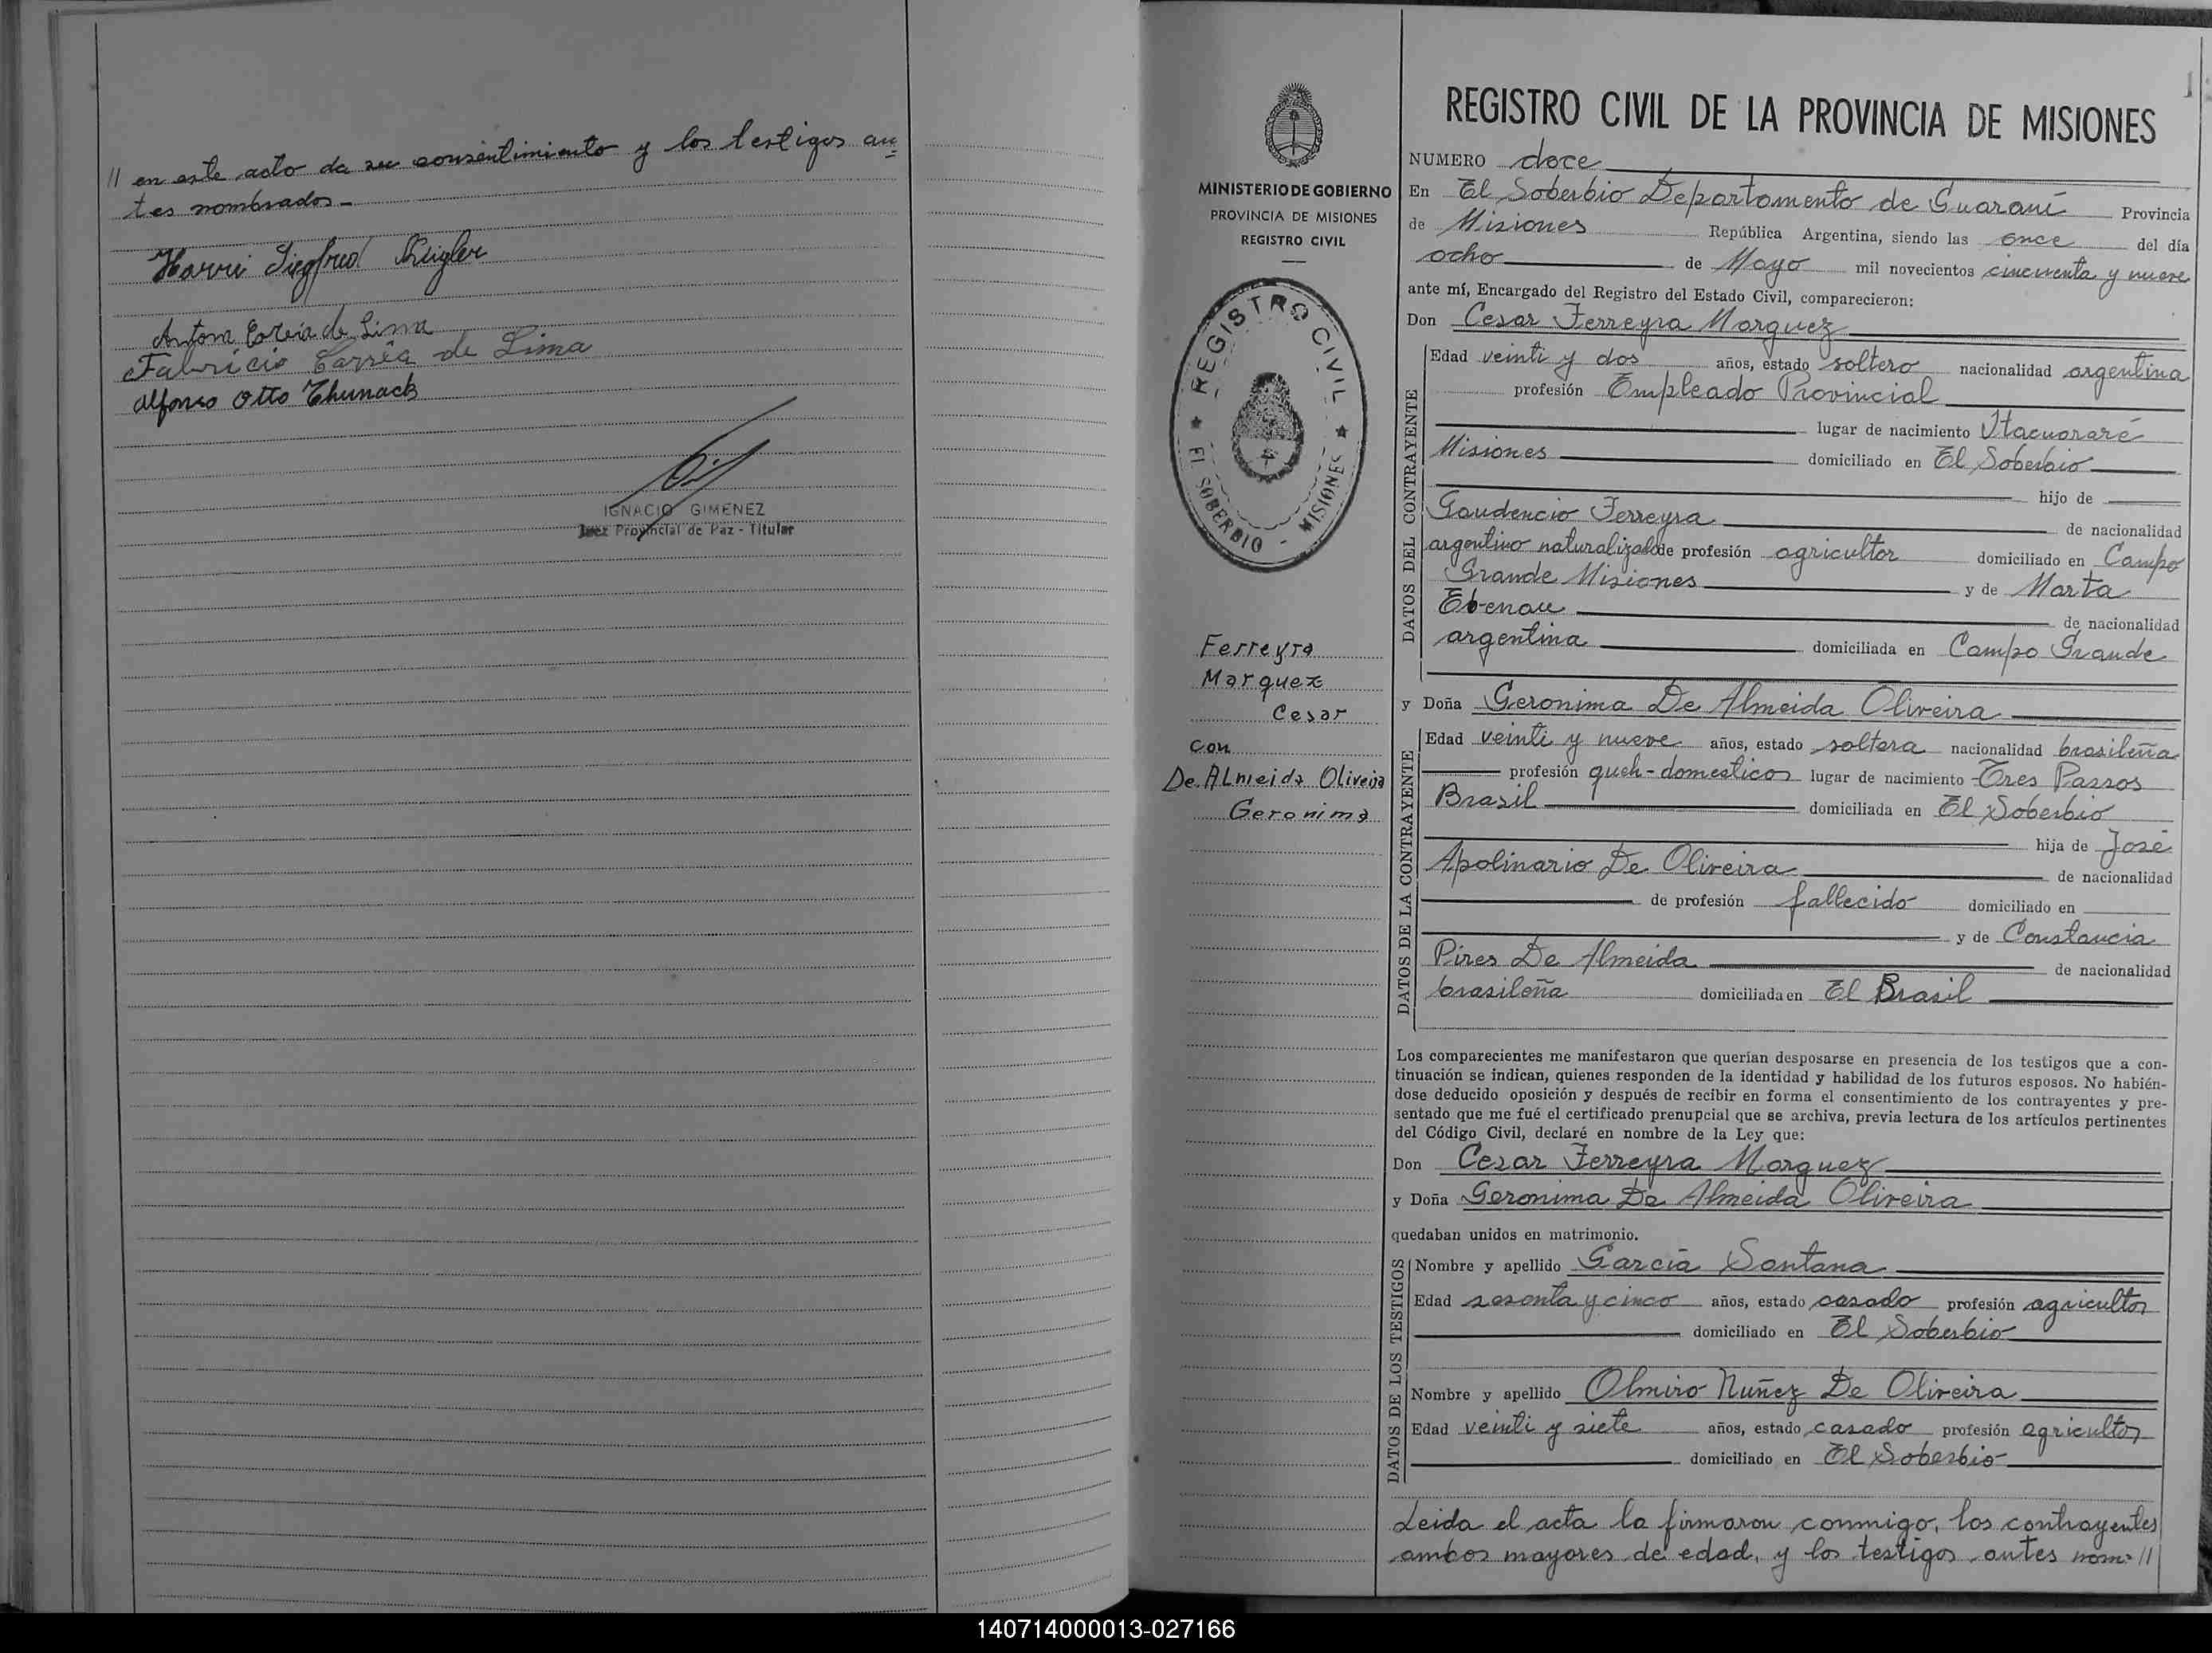 // en este acto da su consentimiento y los testigos an=
tes nombrados-
Harri Siegfried
Fabricio Corrêa de Lima
Alfonso Otto Thunack
IGNACIO GIMENEZ
Juez Provincial de Paz - Titular
MINISTERIO DE GOBIERNO
PROVINCIA DE MISIONES
REGISTRO CIVIL
REGISTRO CIVIL
EL SOBERBIO - MISIONES
Ferreyra
Marquez
Cesar
con
De Almeida Oliveira
Geronima
REGISTRO CIVIL DE LA PROVINCIA DE MISIONES
NUMERO doce
En El Soberbio Departamento de Guaraní Provincia
de Misiones República Argentina, siendo las once del día
ocho de Mayo mil novecientos cincuenta y nueve
ante mí, Encargado del Registro del Estado Civil, comparecieron:
Don Cesar Ferreyra Marquez
DATOS DEL CONTRAYENTE
Edad veinti y dos años, estado soltero nacionalidad argentina
profesión Empleado Provincial
lugar de nacimiento Itacuararé
Misiones domiciliado en El Soberbio
hijo de
Gaudencio Ferreyra de nacionalidad
argentino naturalizado de profesión agricultor domiciliado en Campo
Grande Misiones y de Marta
Ebenau de nacionalidad
argentina domiciliada en Campo Grande
y Doña Geronima De Almeida Oliveira
DATOS DE LA CONTRAYENTE
Edad veinti y nueve años, estado soltera nacionalidad brasileña
profesión queh-domesticos lugar de nacimiento Tres Passos
Brazil domiciliada en El Soberbio
hija de José
Apolinario De Oliveira de nacionalidad
de profesión fallecido domiciliado en
y de Constancia
Pires De Almeida de nacionalidad
brasileña domiciliada en El Brasil
Los comparecientes me manifestaron que querían desposarse en presencia de los testigos que a con-
tinuación se indican, quienes responden de la identidad y habilidad de los futuros esposos. No habién-
dose deducido oposición y después de recibir en forma el consentimiento de los contrayentes y pre-
sentado que me fué el certificado prenupcial que se archiva, previa lectura de los artículos pertinentes
del Código Civil, declaré en nombre de la Ley que:
Don Cesar Ferreyra Marquez
y Doña Geronima De Almeida Oliveira
quedaban unidos en matrimonio.
DATOS DE LOS TESTIGOS
Nombre y apellido García Santana
Edad sesenta y cinco años, estado casado profesión agricultor
domiciliado en El Soberbio
Nombre y apellido Olmiro Nuñez De Oliveira
Edad veinti y siete años, estado casado profesión agricultor
domiciliado en El Soberbio
Leida el acta la firmaron conmigo, los contrayentes
ambos mayores de edad, y los testigos antes nom= //
140714000013-027166